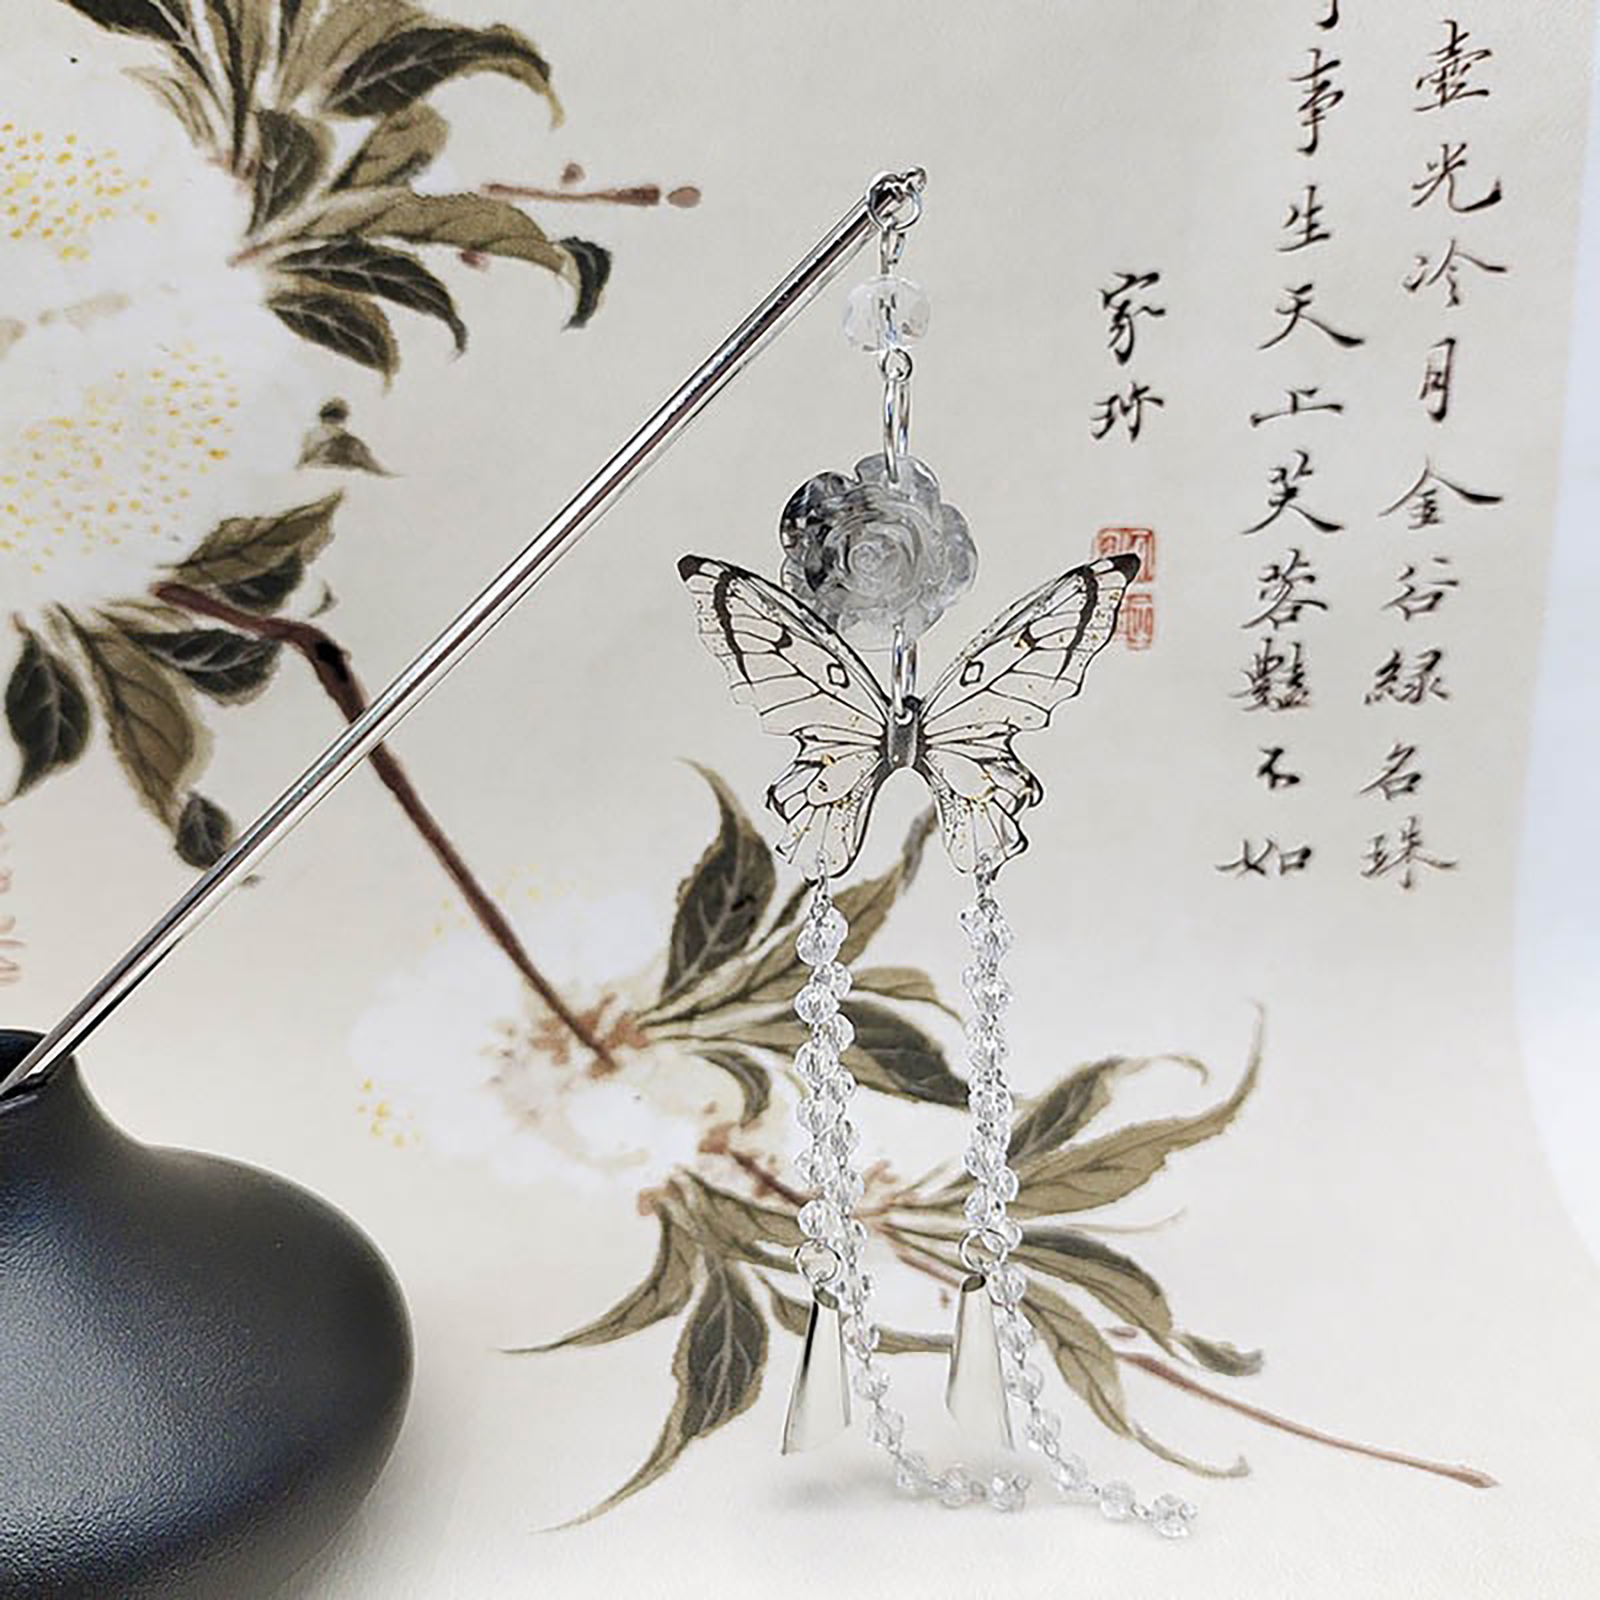 壺光冷月金谷緑名珠
事生天上芙蓉豔不如
家珎